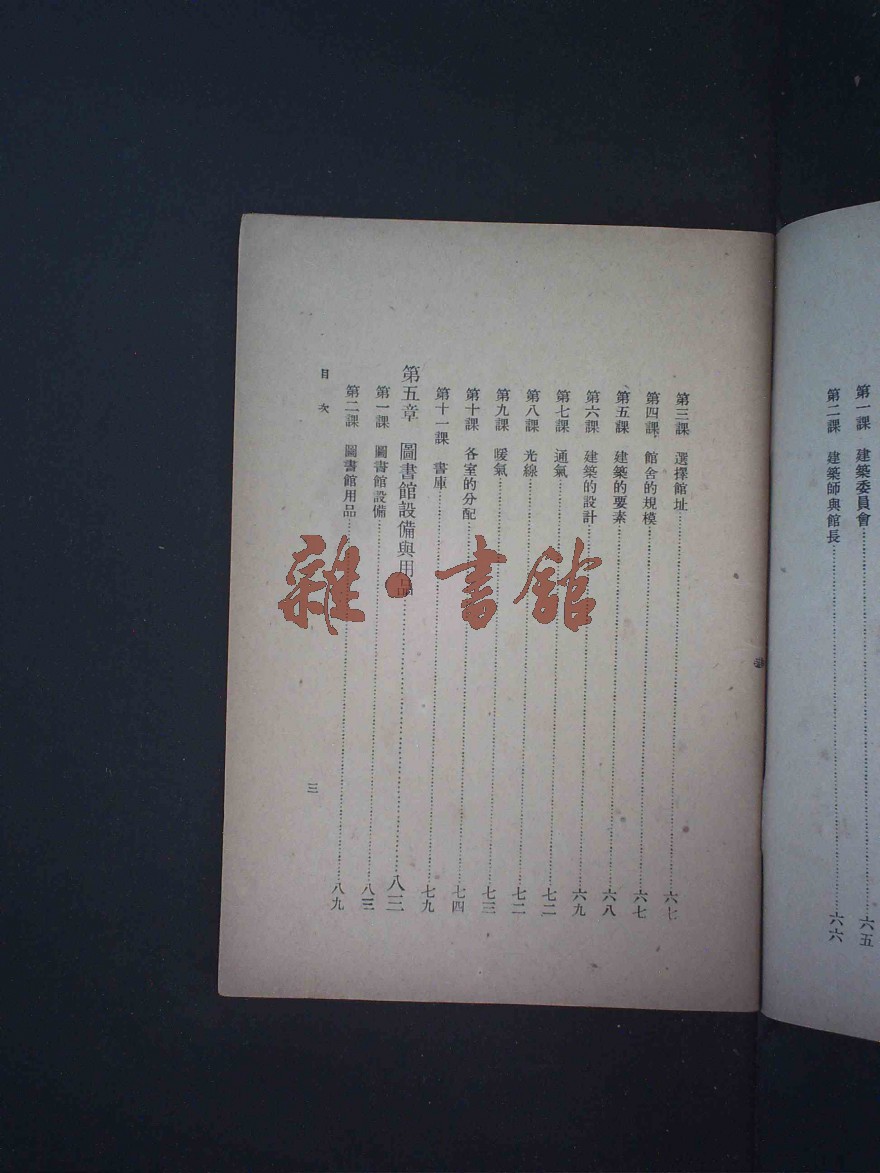 第一課　建築委員會……六五
第二課　建築師與館長……六六
第三課　選擇館址……六七
第四課　館舍的規模……六七
第五課　建築的要素……六八
第六課　建築的設計……六九
第七課　通氣……七二
第八課　光線……七二
第九課　暖氣……七三
第十課　各室的分配……七四
第十一課　書庫……七九
第五章　圖書館設備與用品……八三
第一課　圖書館設備……八三
第二課　圖書館用品……八九
目次
三
雜·書館